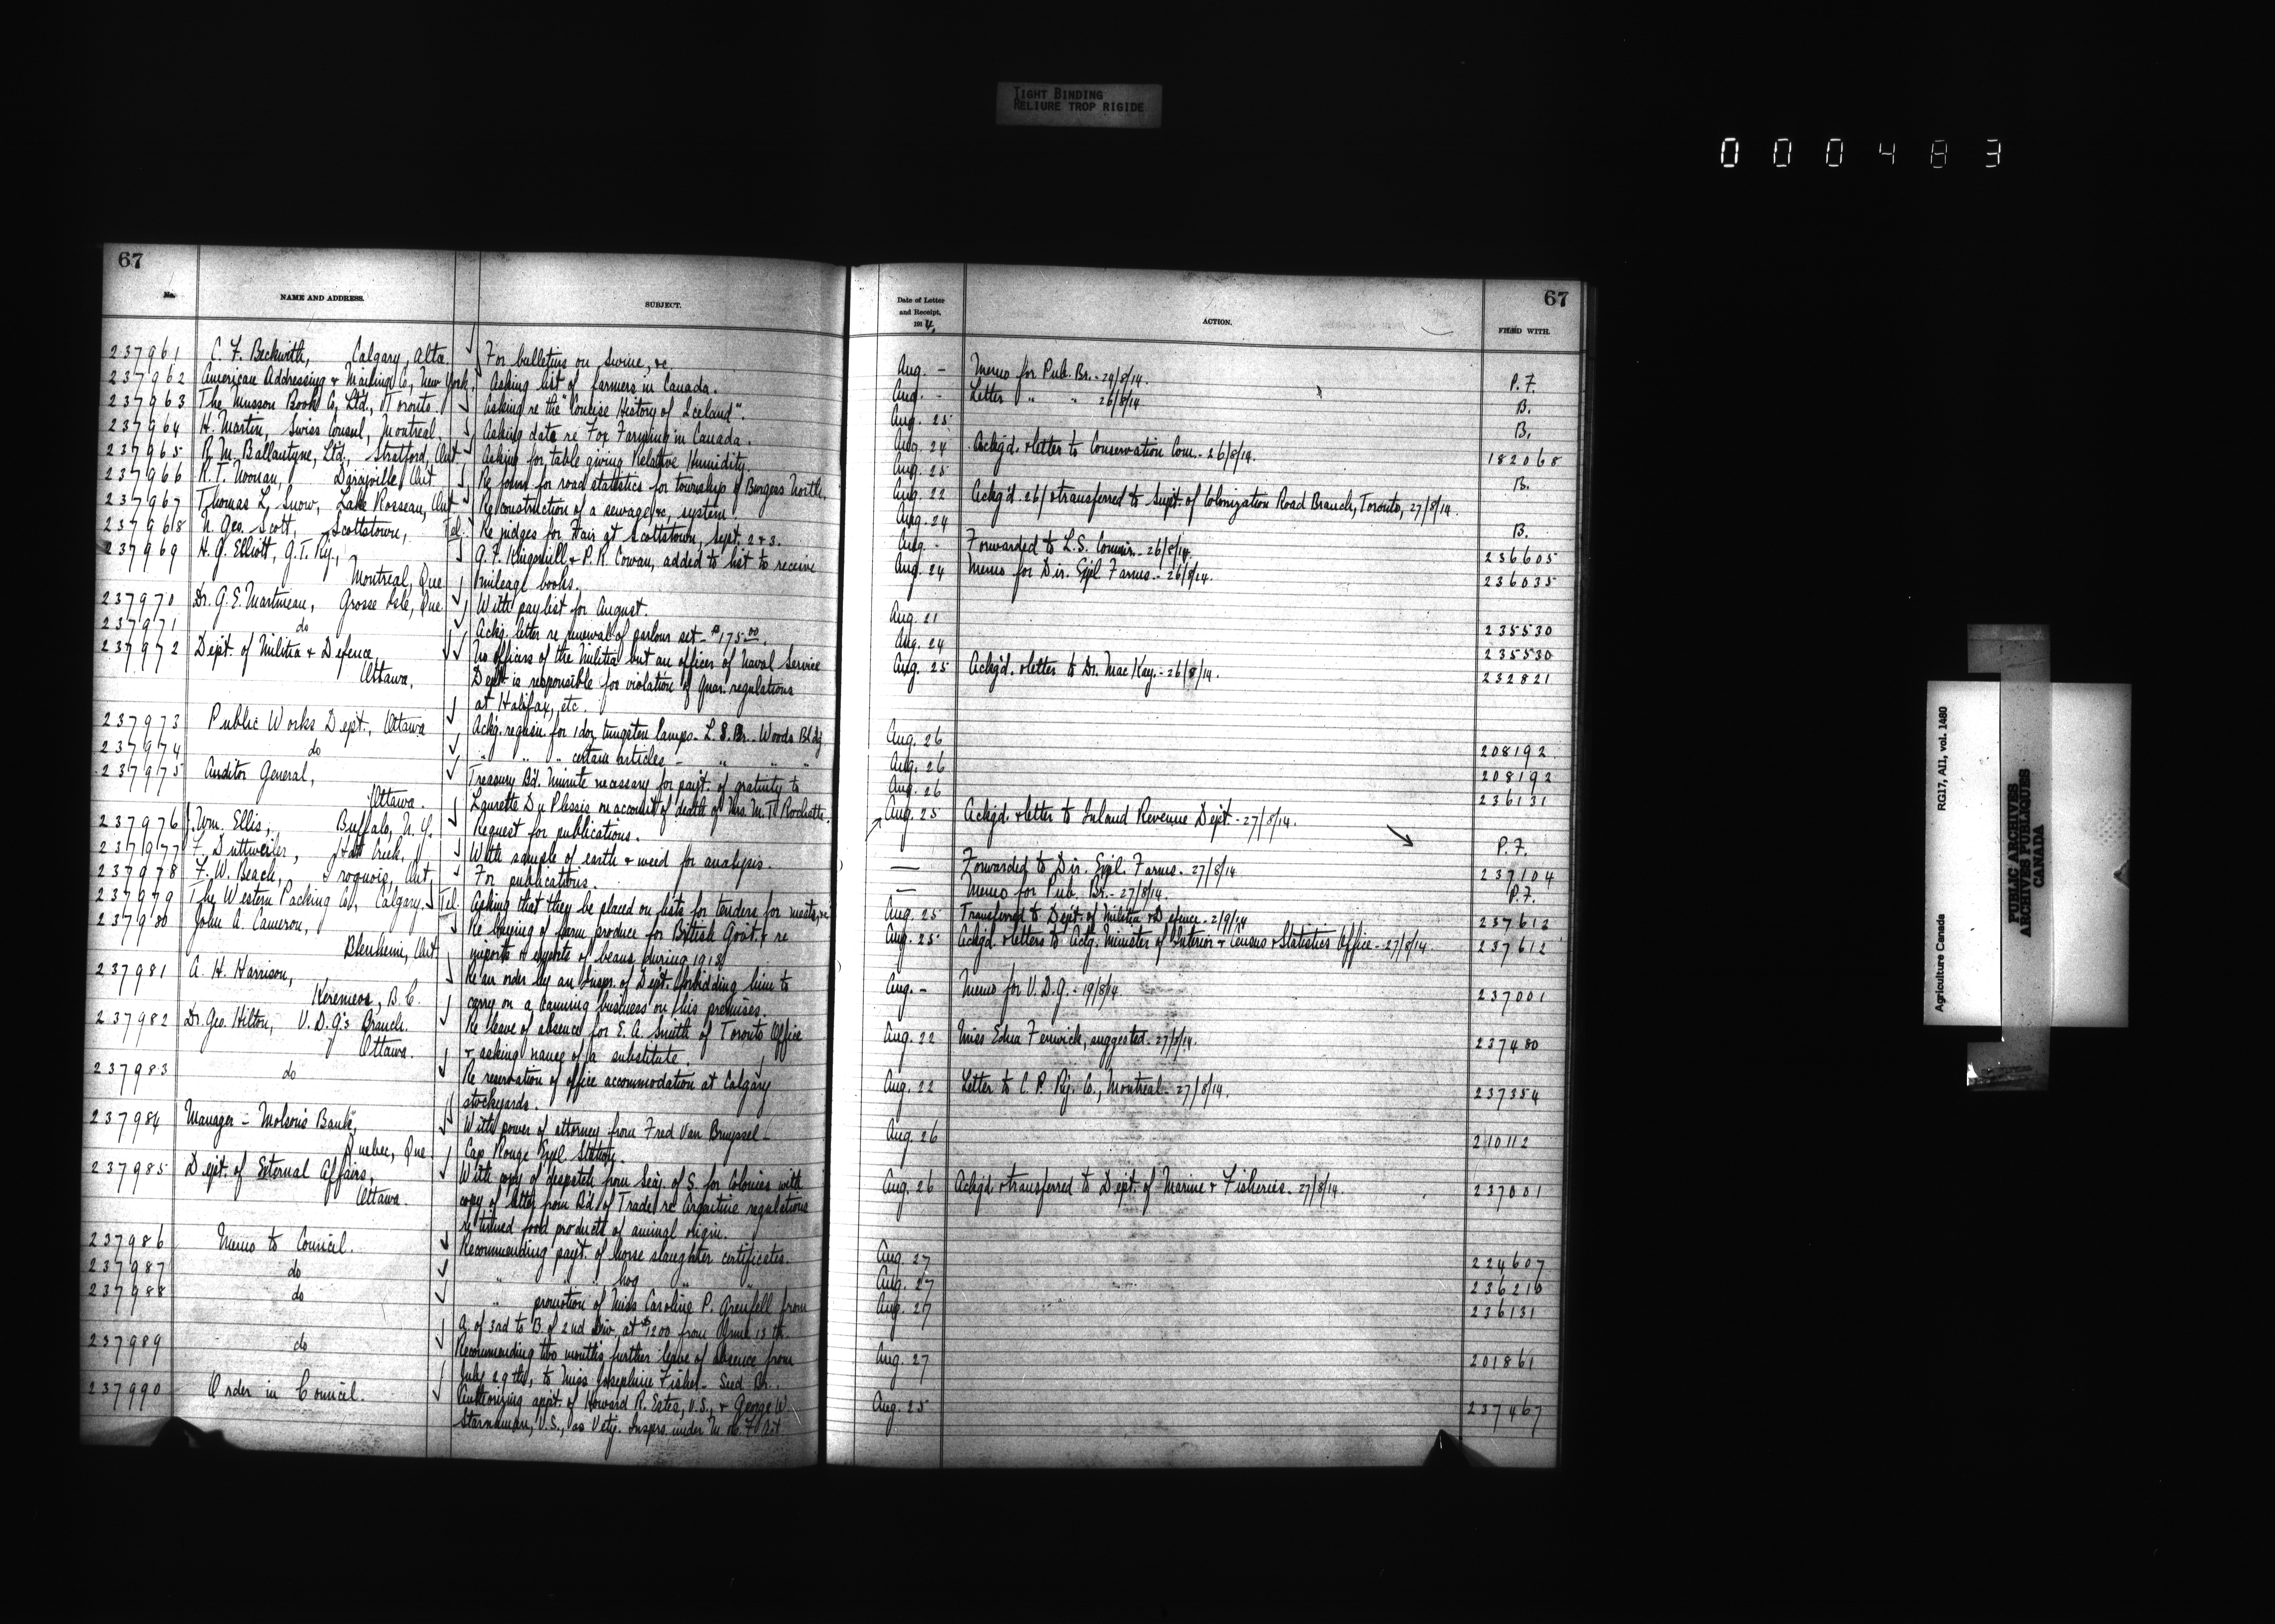 TIGHT BINDING
RELIURE TROP RIGIDE
000483
67
No.
NAME AND ADDRESS.
SUBJECT.
237961 C. F. Beckwith, Calgary, Alta. For bulletins on Swine, &c.
237962 American Addressing & Mailing Co, New York. Asking list of farmers in Canada.
237963 The Musson Book Co, Ltd., Toronto. Asking re the "Concise History of Iceland".
237964 H. Martin, Swiss Consul, Montreal Asking data re Fox Farming in Canada.
237965 R. M. Ballantyne, Ltd., Stratford, Ont. Asking for table giving Relative Humidity.
237966 R. T. Noonan, Ont Re form for road statistics for township of Burgess North.
237967 Thomas L. Snow, Lake Rosseau, Ont Re construction of a sewage &c, system
237968 N. Geo. Scott, Scottstown, Tel. Re judges for Fair at Scottstown, Sept. 2 & 3.
237969 H. G. Elliott, G. T. Ry., G. F. Kingsmill & P. R. Cowan, added to list to receive
Montreal, Que mileage books.
237970 Dr. G. E. Martineau, Grosse Isle, Que With paylist for August.
237971 do Ackg. letter re renewal of parlour set - $175.00.
237972 Dept. of Militia & Defence, No officers of the Militia but an officer of Naval Service
Ottawa, Dept is responsible for violation of Quar. regulations
at Halifax, etc.
237973 Public Works Dept., Ottawa Ackg. requsn. for 1 doz tungsten lamps - L. S. Br. Woods Bldg
237974 do " " " certain articles - " " "
237975 Auditor General, Treasury Bd. Minute necessary for payt. of gratuity to
Ottawa. Laurette Du Plessis on account of death of Mrs. M. T. Rochette.
237976 Wm. Ellis, Buffalo, N. Y. Request for publications.
237977 F. Duttweiler, Hat Creek, With sample of earth & weed for analysis.
237978 F. W. Beach, Iroquois, Ont, For publications.
237979 The Western Packing Co, Calgary. Tel. Asking that they be placed on lists for tenders for meats, &c
237980 John A. Cameron, Re buying of farm produce for British Govt. & re
Blenheim, Ont imports & exports of beans during 1913
237981 A. H. Harrison, Re an order by an Inspr. of Dept. forbidding him to
Keremeos, B. C. carry on a canning business on his premises.
237982 Dr. Geo. Hilton, V. D. G's Branch. Re leave of absence for E. A. Smith of Toronto Office
Ottawa. & asking name of a substitute.
237983 do Re reservation of office accommodation at Calgary
stockyards.
237984 Manager - Molson's Bank, With power of attorney from Fred Van Bruyssel -
Quebec, Que Cap Rouge Expl Station.
237985 Dept. of External Affairs, With copy of despatch from Secy. of S. for Colonies with
Ottawa. copy of letter from Bd. of Trade re Argentine regulations
re tinned food products of animal origin.
237986 Memo to Council. Recommending payt. of horse slaughter certificates.
237987 do " " " hog " "
237988 do " promotion of Miss Caroline P. Grenfell from
A. of 3rd to B. of 2nd Div. at $1200 from June 13th
237989 do Recommending two months further leave of absence from
July 29th, to Miss Josephine Fisher - Seed Br.
237990 Order in Council. Authorizing appt. of Howard R. Estes, V.S., & George W.
Starnaman, V.S., as Vety. Insprs. under M. & C. F. Act
67
Date of Letter
and Receipt,
1914.
ACTION.
FILED WITH.
Aug. - Memo for Pub. Br. - 29/8/14. P. F.
Aug. - Letter " " 26/8/14 B.
Aug. 25 B.
Aug. 24 Ackg'd. & letter to Conservation Com. - 26/8/14. 182068
Aug. 25 B.
Aug. 22 Ackg'd. 26/ & transferred to Supt. of Colonization Road Branch, Toronto, 27/8/14.
Aug. 24 B.
Aug. - Forwarded to L. S. Commr. - 26/8/14. 236605
Aug. 24 Memo for Dir. Expl Farms. - 26/8/14. 236035
Aug. 21 235530
Aug. 24 235530
Aug. 25 Ackg'd. & letter to Dr. MacKay. - 26/8/14. 232821
Aug. 26 208192
Aug. 26 208192
Aug. 26 236131
Aug. 25 Ackg'd. & letter to Inland Revenue Dept. - 27/8/14. P. F.
— Forwarded to Dir. Expl. Farms. - 27/8/14 237104
— Memo for Pub. Br. - 27/8/14. P. F.
Aug. 25 Transferred to Dept. of Militia & Defence. - 2/9/14 237612
Aug. 25 Ackg'd. & letters to Actg. Minister of Interior & Census & Statistics Office. - 27/8/14. 237612
Aug. - Memo for V. D. G. - 19/8/14. 237001
Aug. 22 Miss Edna Fenwick, suggested. - 27/8/14. 237480
Aug. 22 Letter to C. P. Ry. Co., Montreal. - 27/8/14. 237354
Aug. 26 210112
Aug. 26 Ackg'd. & transferred to Dept. of Marine & Fisheries. - 27/8/14. 237001
Aug. 27 224607
Aug. 27 236210
Aug. 27 236131
Aug. 27 201861
Aug. 25 237467
Agriculture Canada RG17, AII, vol. 1480
PUBLIC ARCHIVES
ARCHIVES PUBLIQUES
CANADA